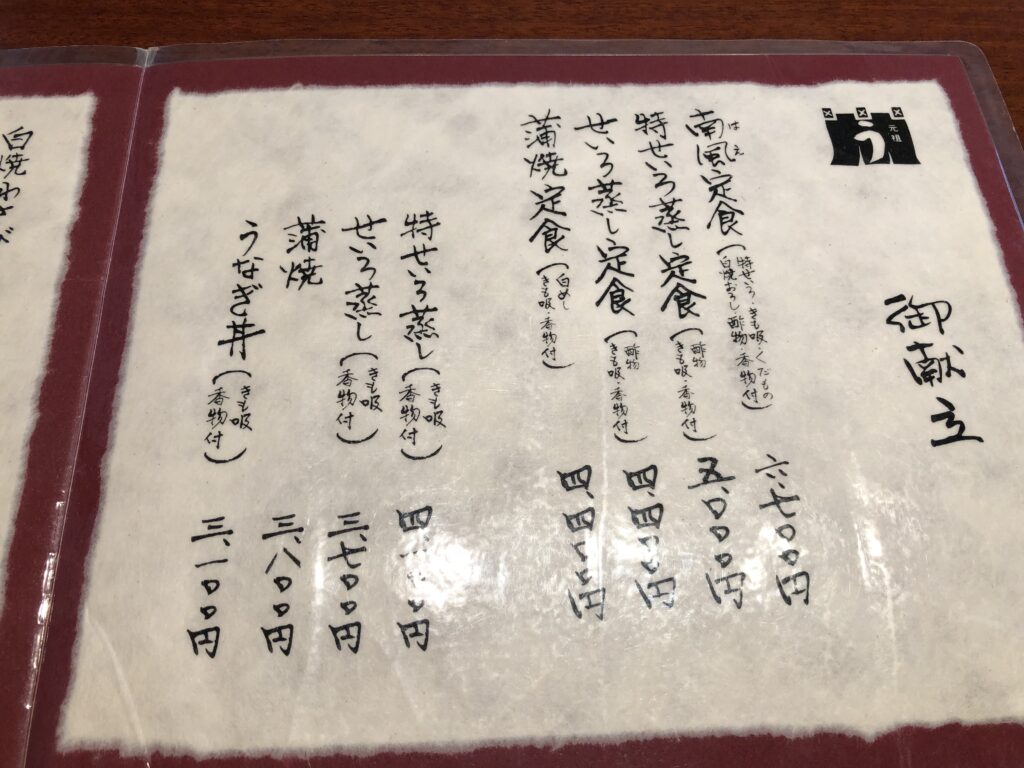 元祖
う
御献立
南風定食(特せいろ・きも吸・くだもの
はえ
白焼おろし・酢物・香物付)
六、七〇〇円
特せいろ蒸し定食(酢物
きも吸・香物付)
五、〇〇〇円
せいろ蒸し定食(酢物
きも吸・香物付)
四、四〇〇円
蒲焼定食(白めし
きも吸・香物付)
四、四〇〇円
特せいろ蒸し(きも吸
香物付)
四、〇円
せいろ蒸し(きも吸
香物付)
三、七〇〇円
蒲焼
三、八〇〇円
うなぎ丼(きも吸
香物付)
三、一〇〇円
白焼わさび